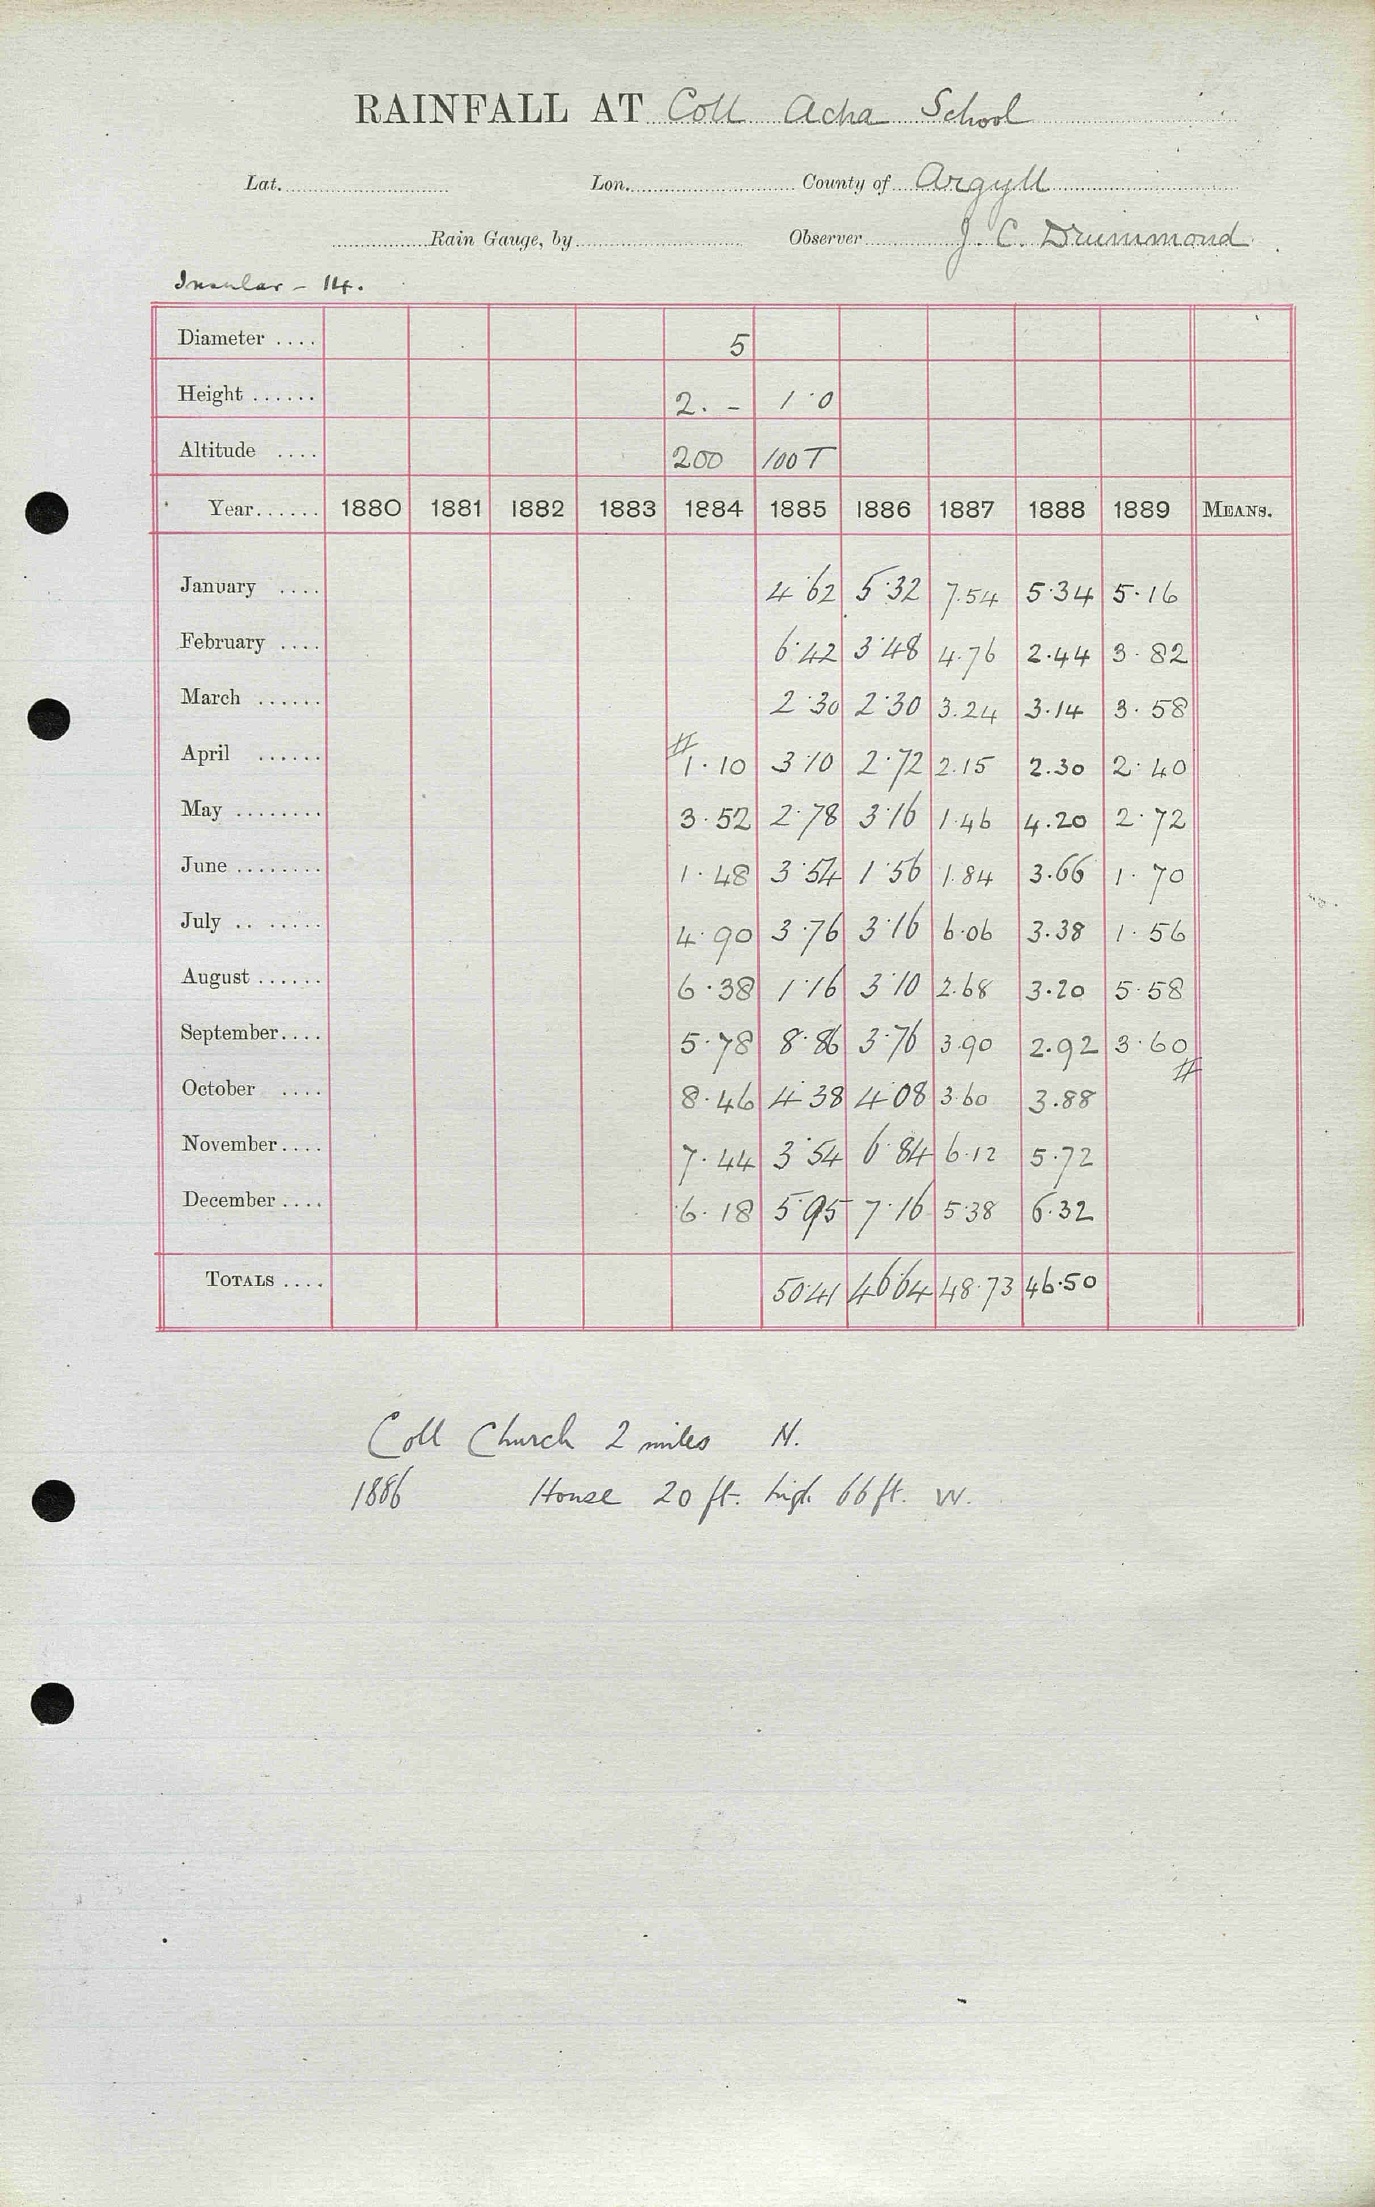 RAINFALL AT Coll Acha School
Lat. Lon. County of Argyll
Rain Gauge, by Observer J. C. Drummond
Insular - 14.
Diameter .... 5
Height ...... 2. - 1·0
Altitude .... 200 100 T
Year...... 1880 1881 1882 1883 1884 1885 1886 1887 1888 1889 MEANS.
January .... 4·62 5·32 7.54 5·34 5·16
February .... 6·42 3·48 4.76 2·44 3·82
March ...... 2·30 2·30 3.24 3·14 3·58
April ...... # 1·10 3·10 2·72 2.15 2.30 2·40
May ........ 3·52 2·78 3·16 1·46 4.20 2·72
June ........ 1·48 3·54 1·56 1.84 3.66 1·70
July .. ..... 4·90 3·76 3·16 6·06 3·38 1·56
August ...... 6·38 1·16 3·10 2.68 3·20 5·58
September.... 5·78 8·86 3·76 3.90 2.92 3·60 #
October .... 8·46 4·38 4·08 3·60 3.88
November.... 7·44 3·54 6·84 6·12 5·72
December.... 6·18 5·95 7·16 5·38 6·32
TOTALS .... 50·41 46·64 48·73 46·50
Coll Church 2 miles N.
1886 House 20 ft. high 66 ft. W.